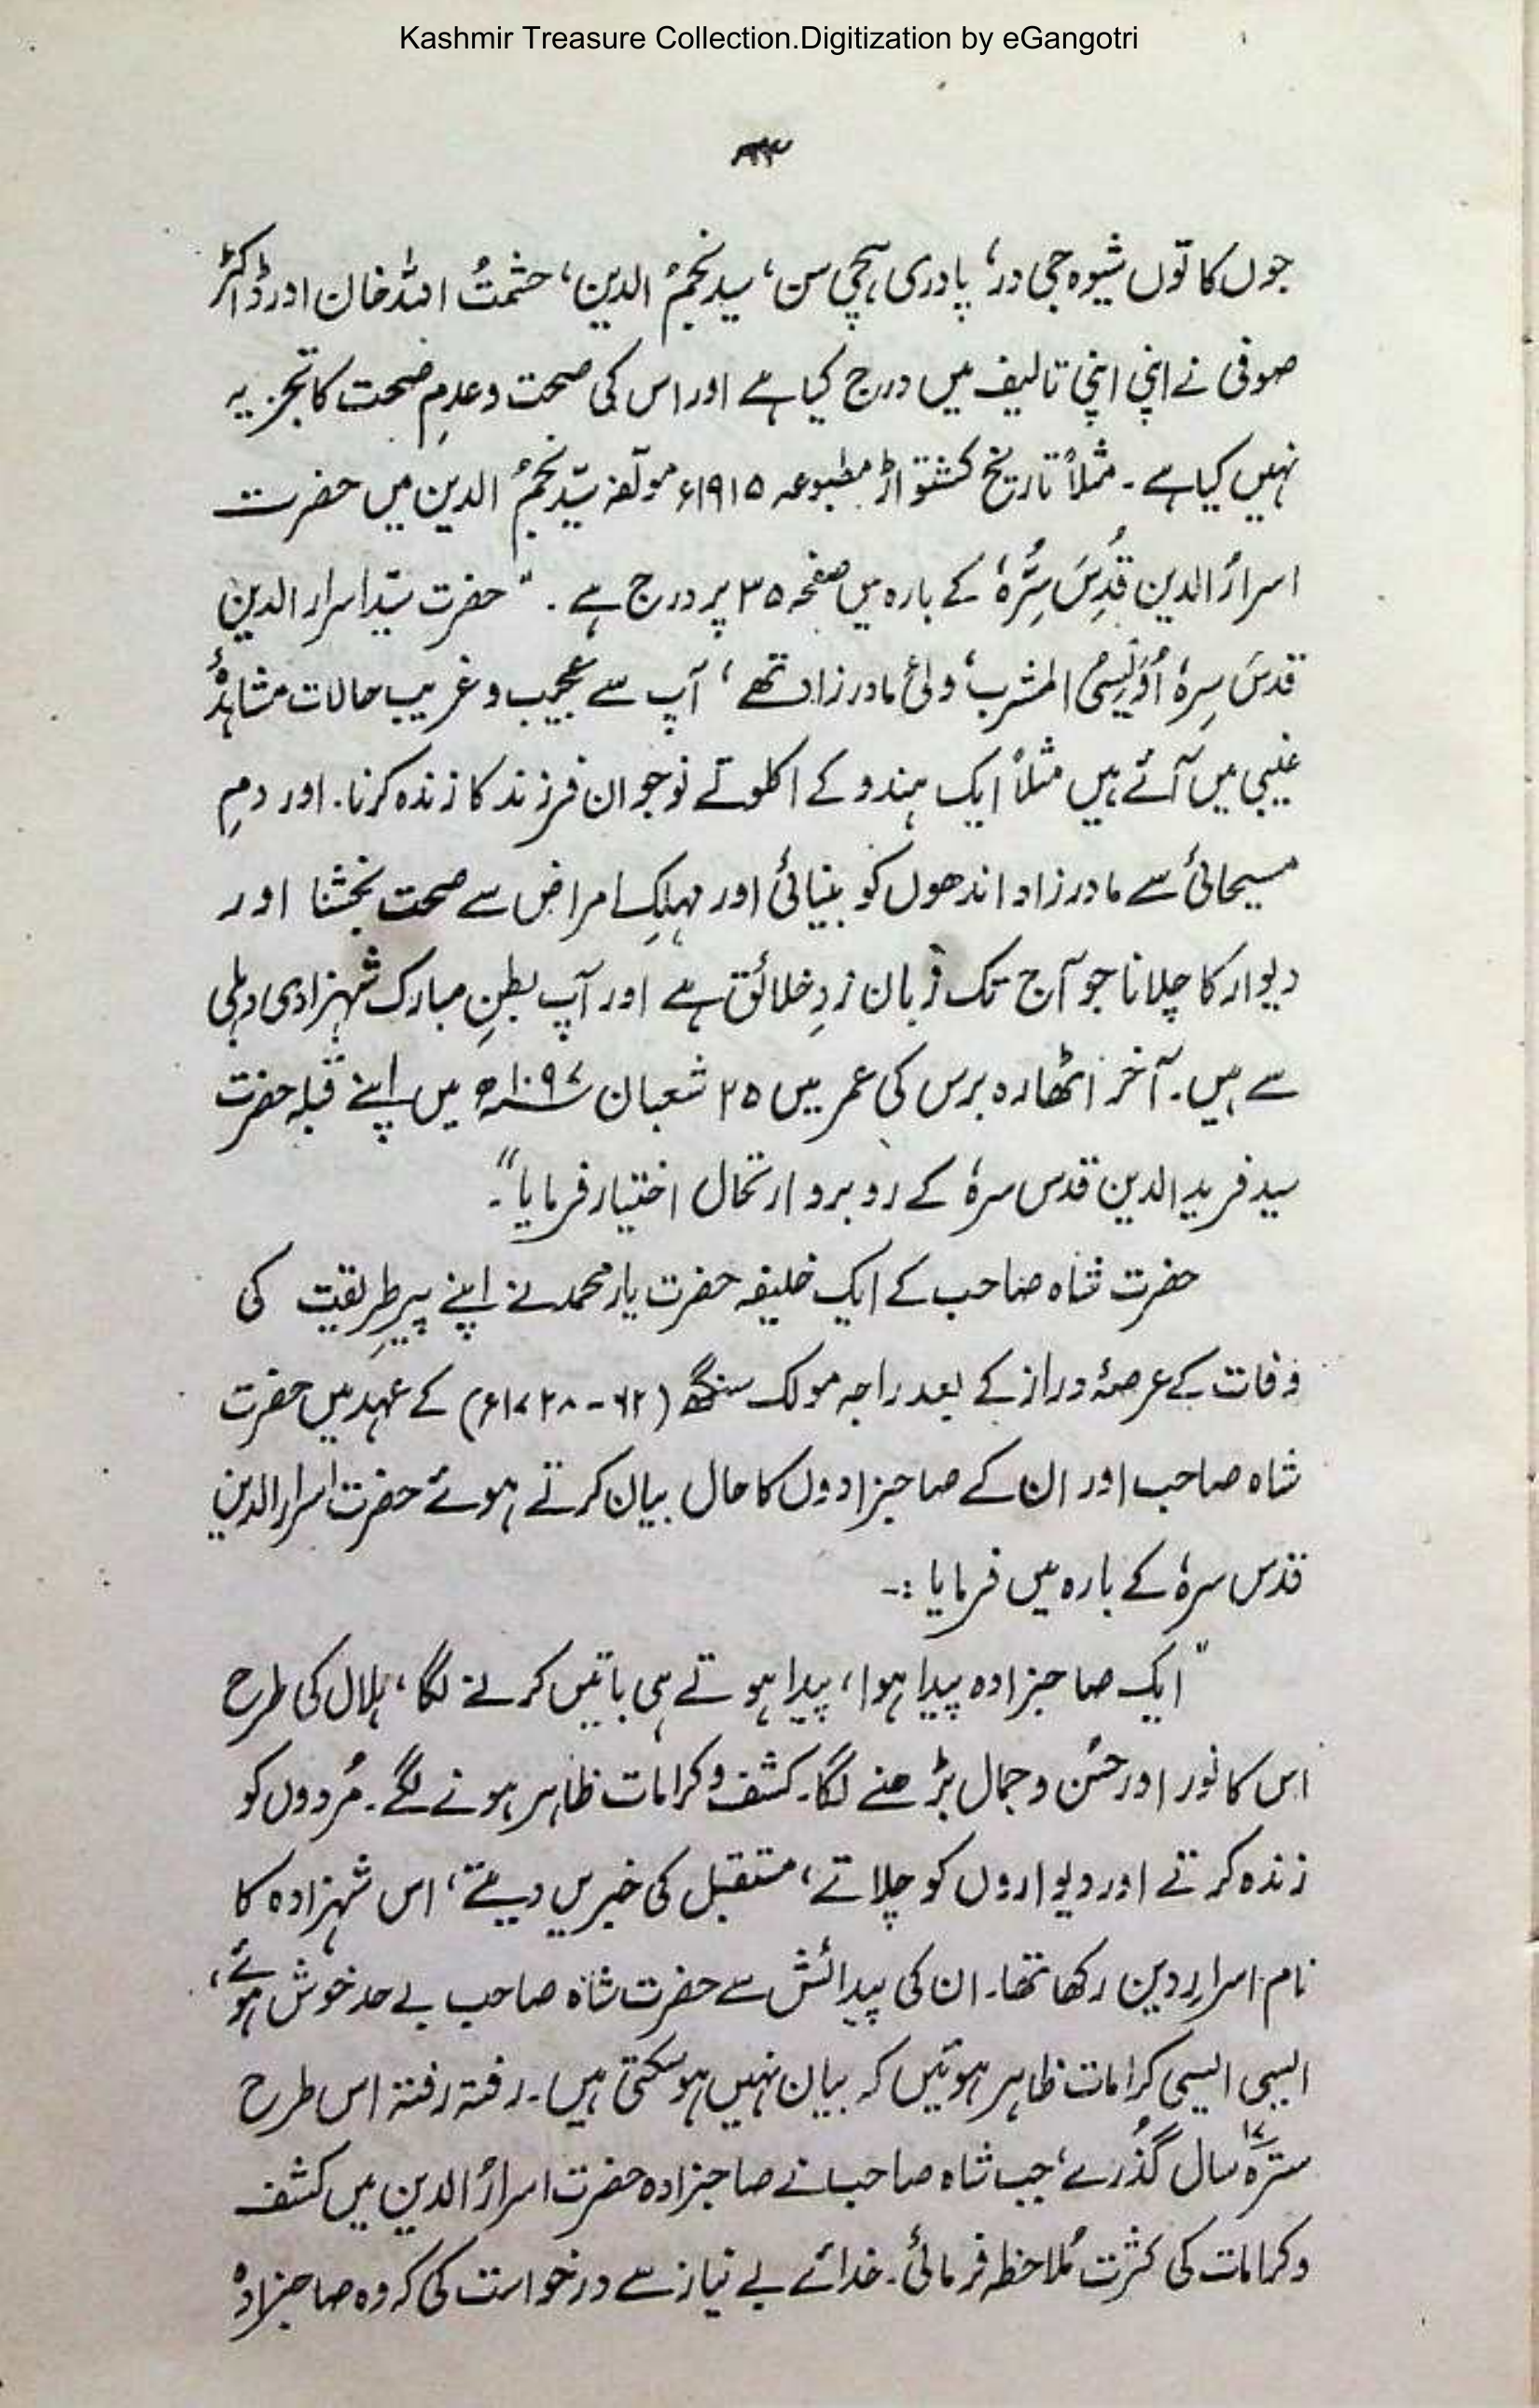 Kashmir Treasure Collection.Digitization by eGangotri
جوں کا توں شیوہ جی در، پادری ہچی سن، سید نجمُ الدین، حشمتُ اللہ خان اور ڈاکٹر
صوفی نے اپنی اپنی تالیف میں درج کیا ہے اور اس کی صحت و عدمِ صحت کا تجزیہ
نہیں کیا ہے ۔ مثلاً تاریخ کشتواڑ مطبوعہ ۱۹۱۵ء مولّفہ سیّد نجمُ الدین میں حضرت
اسرارُ الدین قُدِسَ سِرُّہٗ کے بارہ میں صفحہ ۳۵ پر درج ہے ۔ "حضرت سیّد اسرار الدین
قدسَ سِرہٗ اُوَیسیُ المشرب، ولیٔ مادرزاد تھے، آپ سے عجیب و غریب حالات مشاہدۂ
غیبی میں آئے ہیں مثلاً ایک ہندو کے اکلوتے نوجوان فرزند کا زندہ کرنا۔ اور دمِ
مسیحائی سے مادرزاد اندھوں کو بنیائی اور مہلکِ امراض سے صحت بخشنا اور
دیوار کا چلانا جو آج تک زبان زدِ خلائق ہے اور آپ بطنِ مبارک شہزادی دہلی
سے ہیں۔ آخر اٹھارہ برس کی عمر میں ۲۵ شعبان ۱۰۹۷ھ میں اپنے قبلہ حضرت
سید فرید الدین قدس سرہٗ کے روبرو ارتحال اختیار فرمایا"۔
حضرت شاہ صاحب کے ایک خلیفہ حضرت یار محمد نے اپنے پیرِ طریقیت کی
وفات کے عرصۂ دراز کے بعد راجہ مولک سنگھ (۶۲ - ۱۷۲۸ء) کے عہد میں حضرت
شاہ صاحب اور ان کے صاحبزادوں کا حال بیان کرتے ہوئے حضرت اسرار الدین
قدس سرہٗ کے بارہ میں فرمایا :-
"ایک صاحبزادہ پیدا ہوا، پیدا ہوتے ہی باتیں کرنے لگا، ہلال کی طرح
اس کا نور اور حسُن و جمال بڑھنے لگا۔ کشف و کرامات ظاہر ہونے لگے۔ مُردوں کو
زندہ کرتے اور دیواروں کو چلاتے، مستقبل کی خبریں دیتے، اس شہزادہ کا
نام اسرارِ دین رکھا تھا۔ ان کی پیدائش سے حضرت شاہ صاحب بے حد خوش ہوئے،
ایسی ایسی کرامات ظاہر ہوئیں کہ بیان نہیں ہو سکتی ہیں۔ رفتہ رفتہ اس طرح
سترہ ۱۷ سال گُذرے، جب شاہ صاحب نے صاحبزادہ حضرت اسرارُ الدین میں کشف
و کرامات کی کثرت مُلاحظہ فرمائی۔ خدائے بے نیاز سے درخواست کی کہ وہ صاحبزادہ